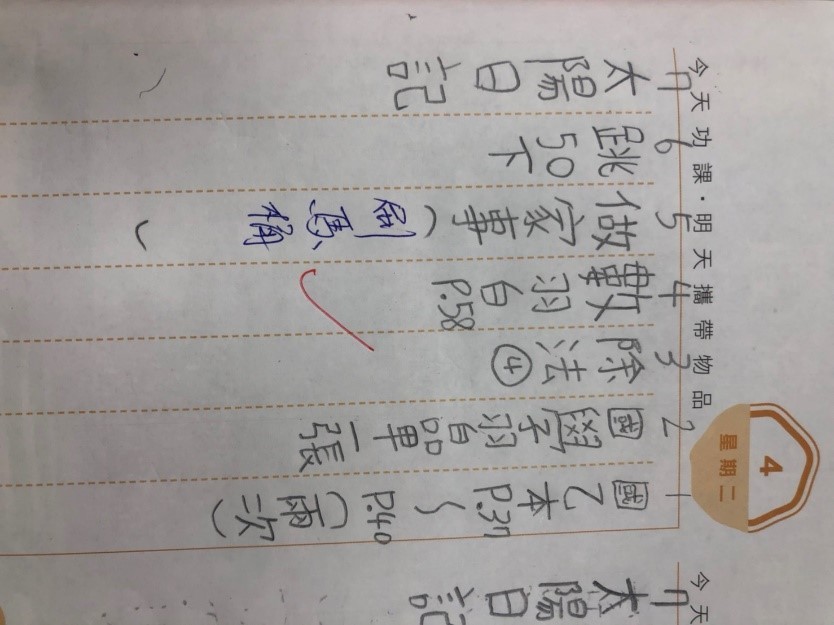 4
星期二
今天功課‧明天攜帶物品
1 國乙本P.37～P.40(兩次)
2 國學習單一張
3 除法④
4 數習P.58
5 做家事(刷馬桶)
6 跳50下
7 太陽日記
今天
7 太陽日記